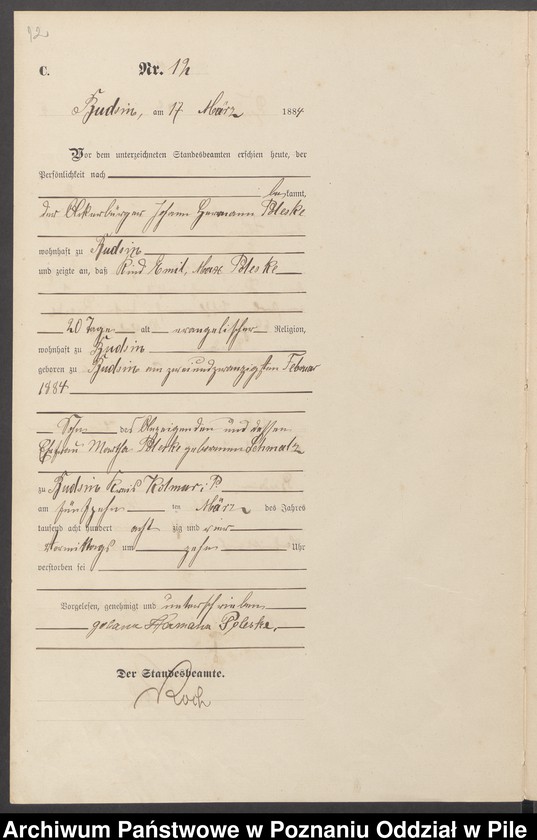 12
C.
Nr. 12
Budsin, am 17 März 1884
Vor dem unterzeichneten Standesbeamten erschien heute, der
Persönlichkeit nach
bekannt,
der Ackerbürger Johann Hermann Poleske
wohnhaft zu Budsin
und zeigte an, daß Kind Emil, Max Poleske
20 Tage alt evangelischer Religion,
wohnhaft zu Budsin
geboren zu Budsin am zweiundzwanzigsten Februar
1884
Sohn des Anzeigenden und dessen
Ehefrau Martha Poleske geborenen Schmalz
zu Budsin Kreis Kolmar i P.
am fünfzehn ten März des Jahres
tausend acht hundert acht zig und vier
Vormittags um zehn Uhr
verstorben sei
Vorgelesen, genehmigt und unterschrieben
Hermann Poleske.
Der Standesbeamte.
Koch
Archiwum Państwowe w Poznaniu Oddział w Pile